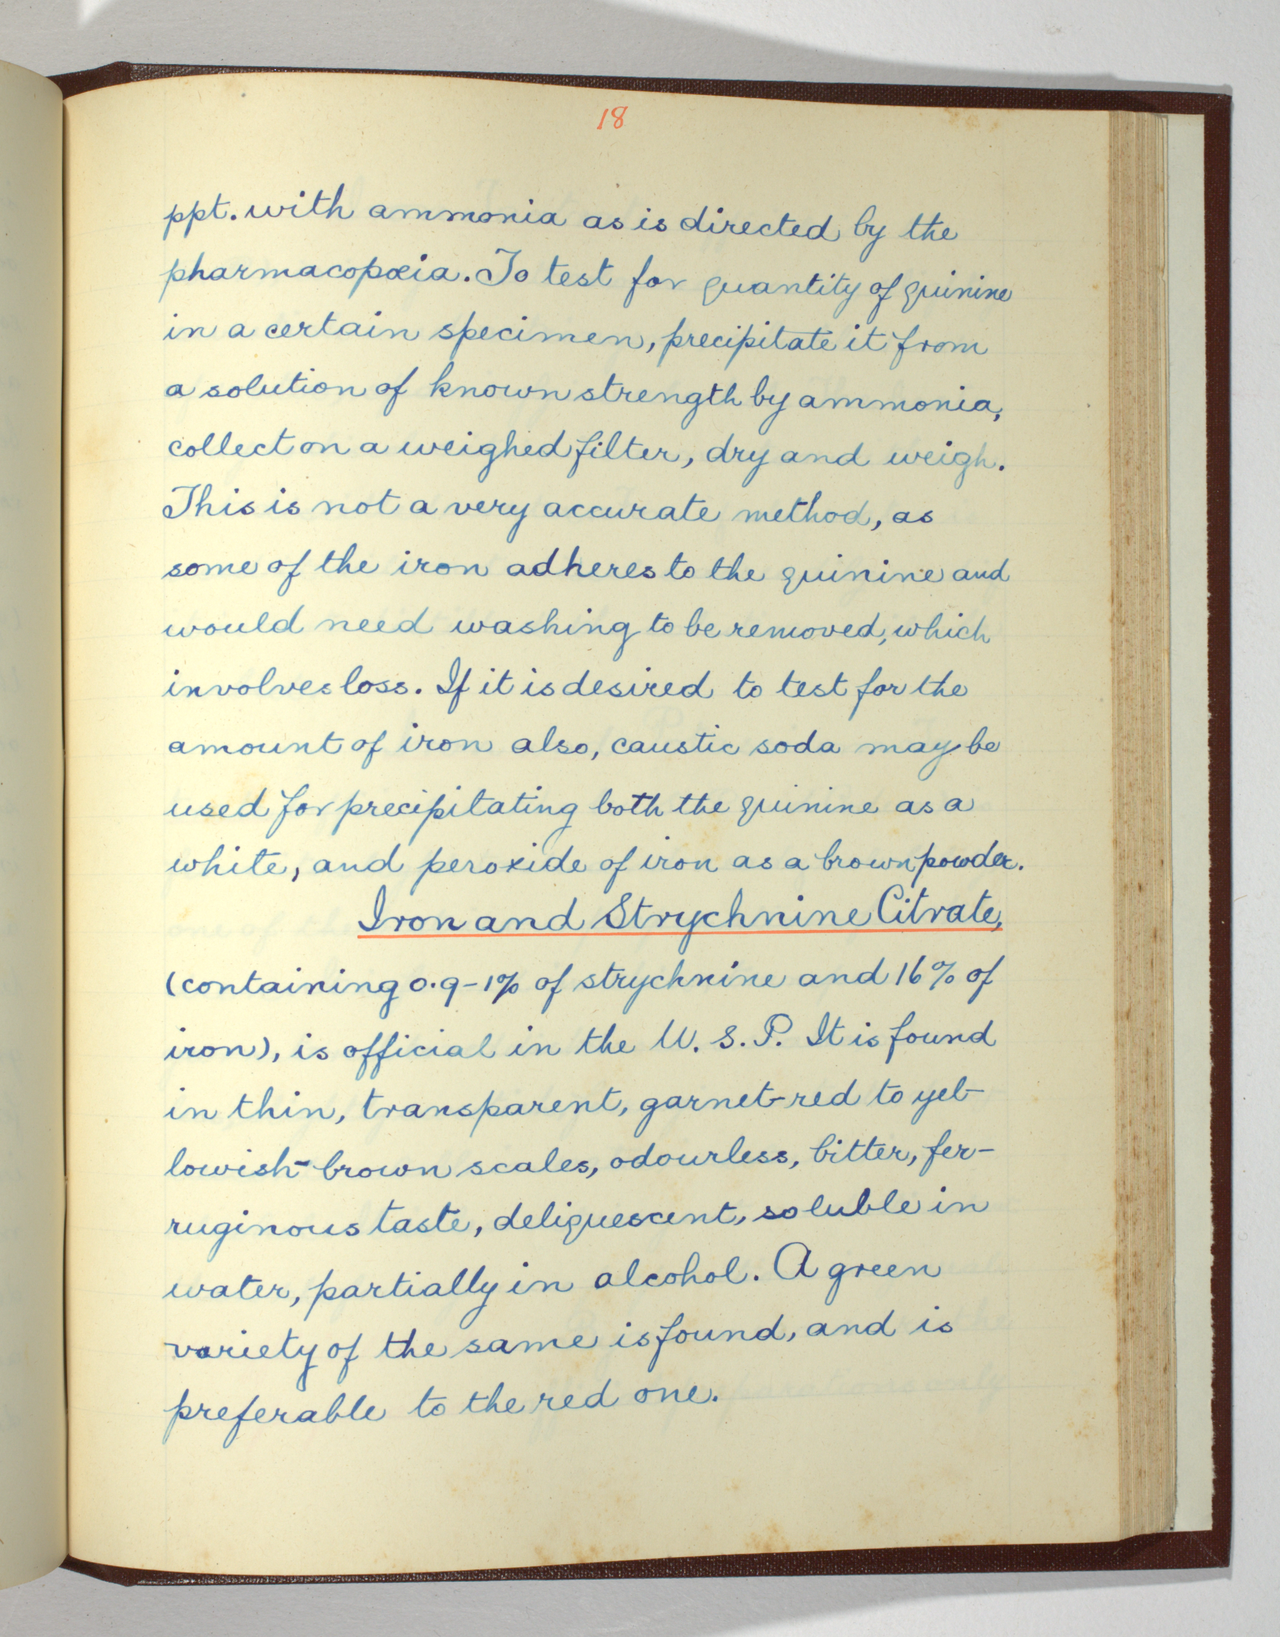 18
ppt. with ammonia as is directed by the
pharmacopœia. To test for quantity of quinine
in a certain specimen, precipitate it from
a solution of known strength by ammonia,
collect on a weighed filter, dry and weigh.
This is not a very accurate method, as
some of the iron adheres to the quinine and
would need washing to be removed, which
involves loss. If it is desired to test for the
amount of iron also, caustic soda may be
used for precipitating both the quinine as a
white, and peroxide of iron as a brown powder.
Iron and Strychnine Citrate,
(containing 0.9-1% of strychnine and 16% of
iron), is official in the U. S. P. It is found
in thin, transparent, garnet-red to yel-
lowish-brown scales, odourless, bitter, fer-
ruginous taste, deliquescent, soluble in
water, partially in alcohol. A green
variety of the same is found, and is
preferable to the red one.